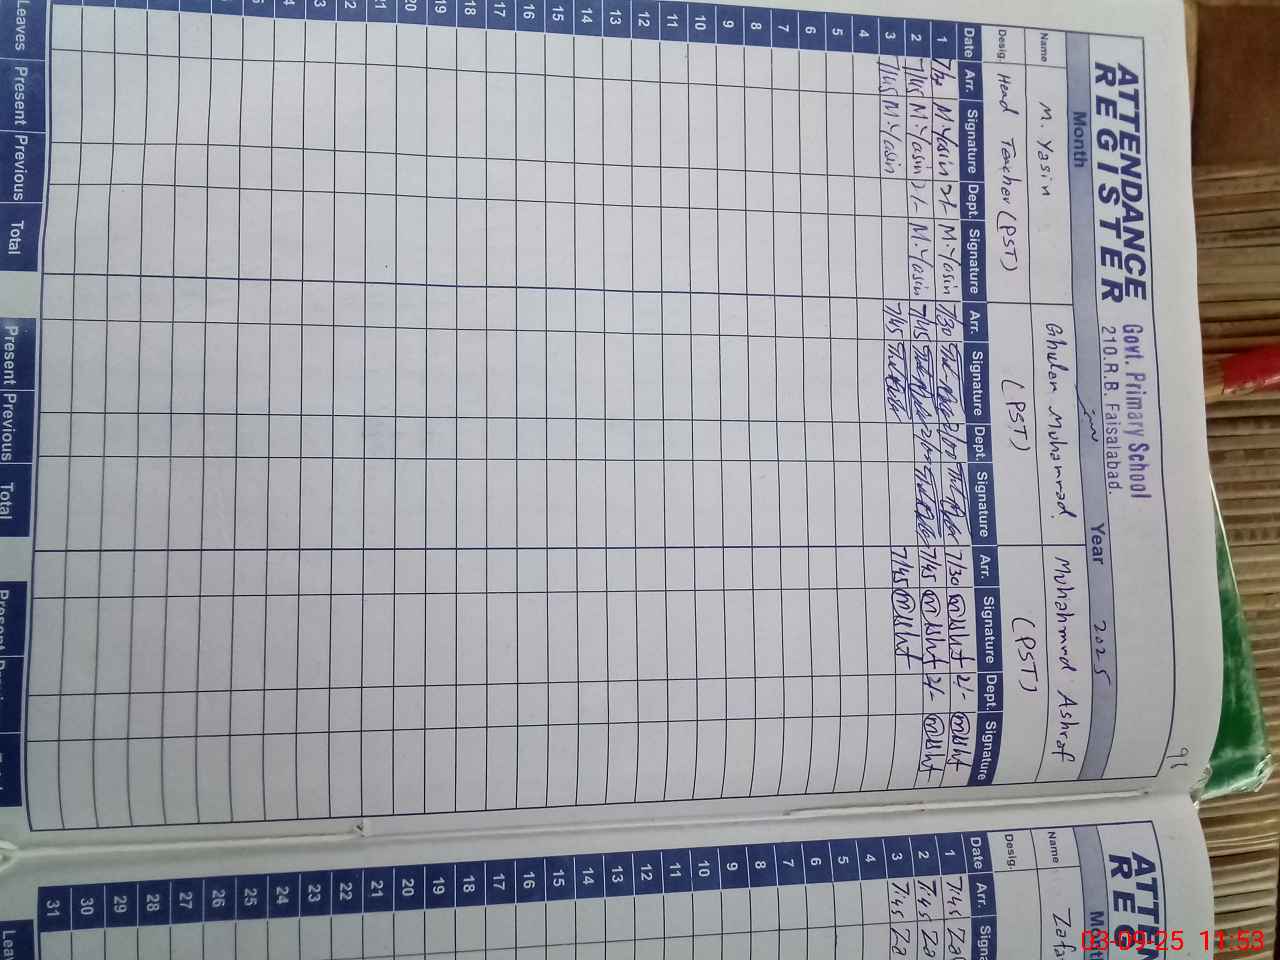 ATTENDANCE
REGISTER
Govt. Primary School
210.R.B. Faisalabad.
91
Month Year 2025
Name M. Yasin Ghulam Muhammad Muhammad Ashraf
Desig. Head Teacher (PST) (PST) (PST)
Date Arr. Signature Dept. Signature Arr. Signature Dept. Signature Arr. Signature Dept. Signature
1 M.Yasin 2/- M.Yasin 7/30 2/00 7/30 2/-
2 7/45 M.Yasin 2/- M.Yasin 7/45 7/45 2/-
3 7/45 M.Yasin 7/45 7/45
4
5
6
7
8
9
10
11
12
13
14
15
16
17
18
19
20
21
22
23
Leaves Present Previous Total Present Previous Total Present
ATTEN
REG
Name Zafa
Desig.
Date Arr. Signa
1 7/45
2 7/45 Za
3 7/45 Za
4
5
6
7
8
9
10
11
12
13
14
15
16
17
18
19
20
21
22
23
24
25
26
27
28
29
30
31
03-09-25 11:53